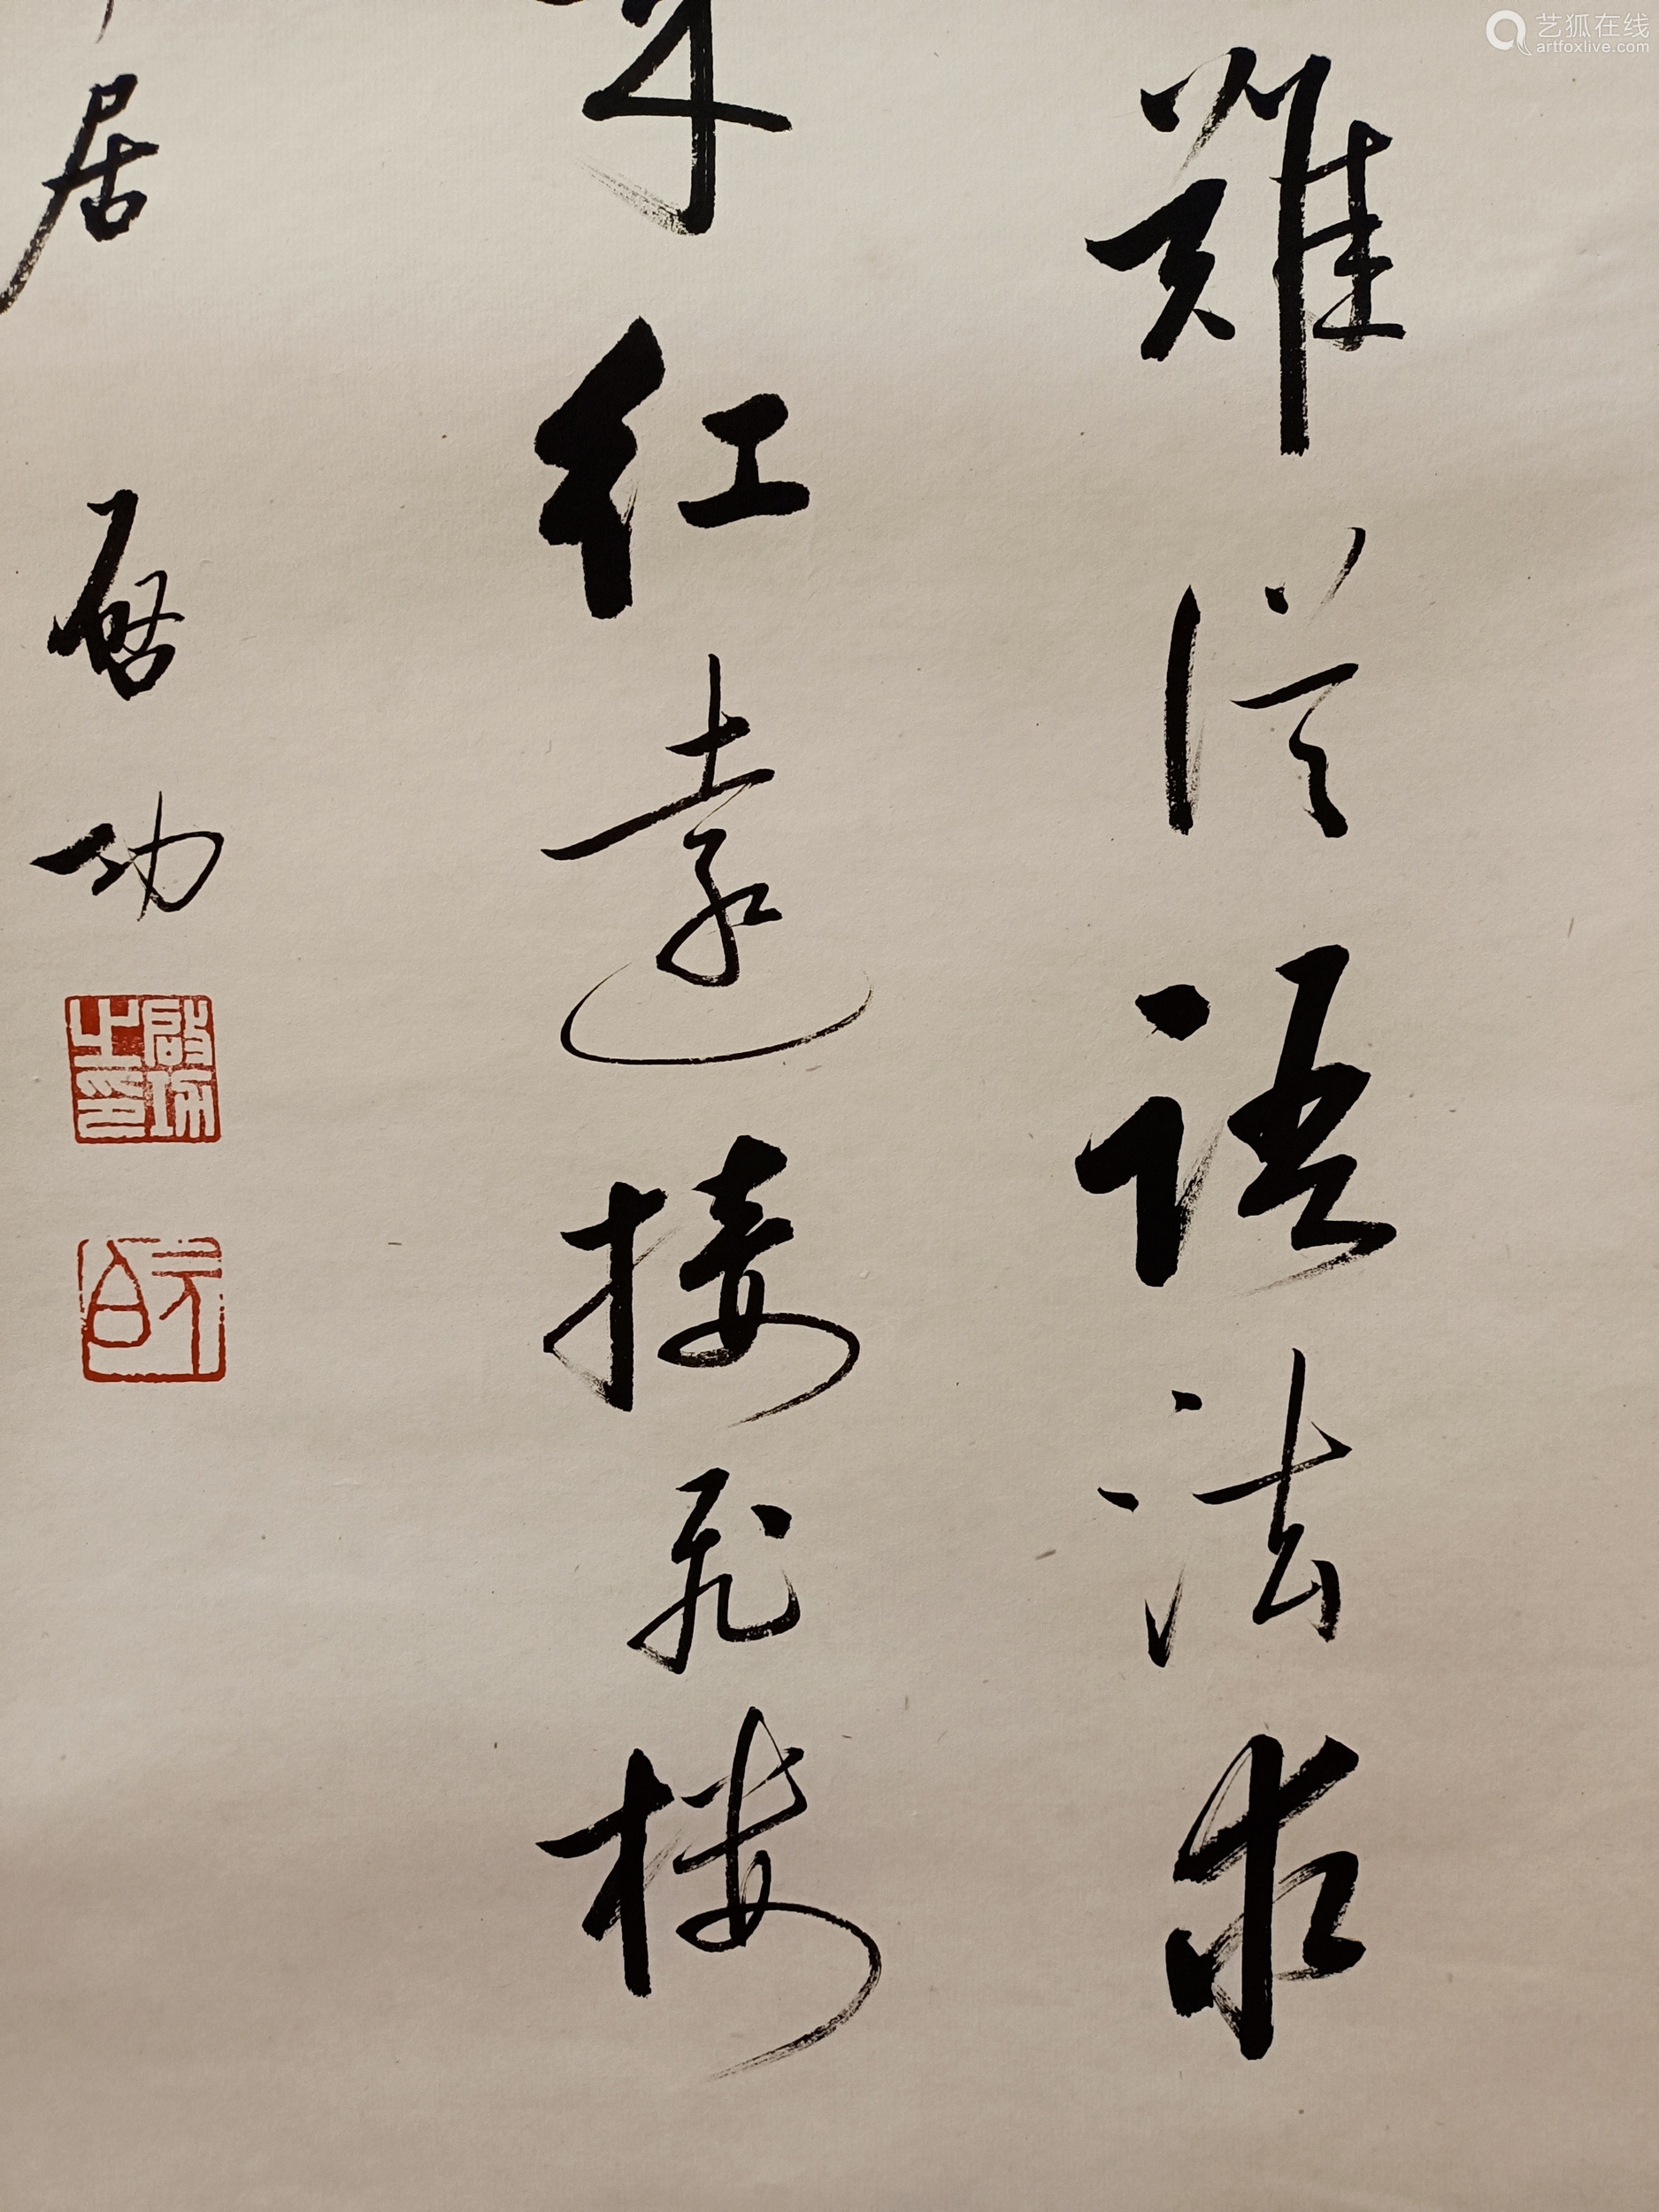 難從語法求
紅遠接飛樓
居 啟功
啟功之印
元白
艺狐在线
artfoxlive.com